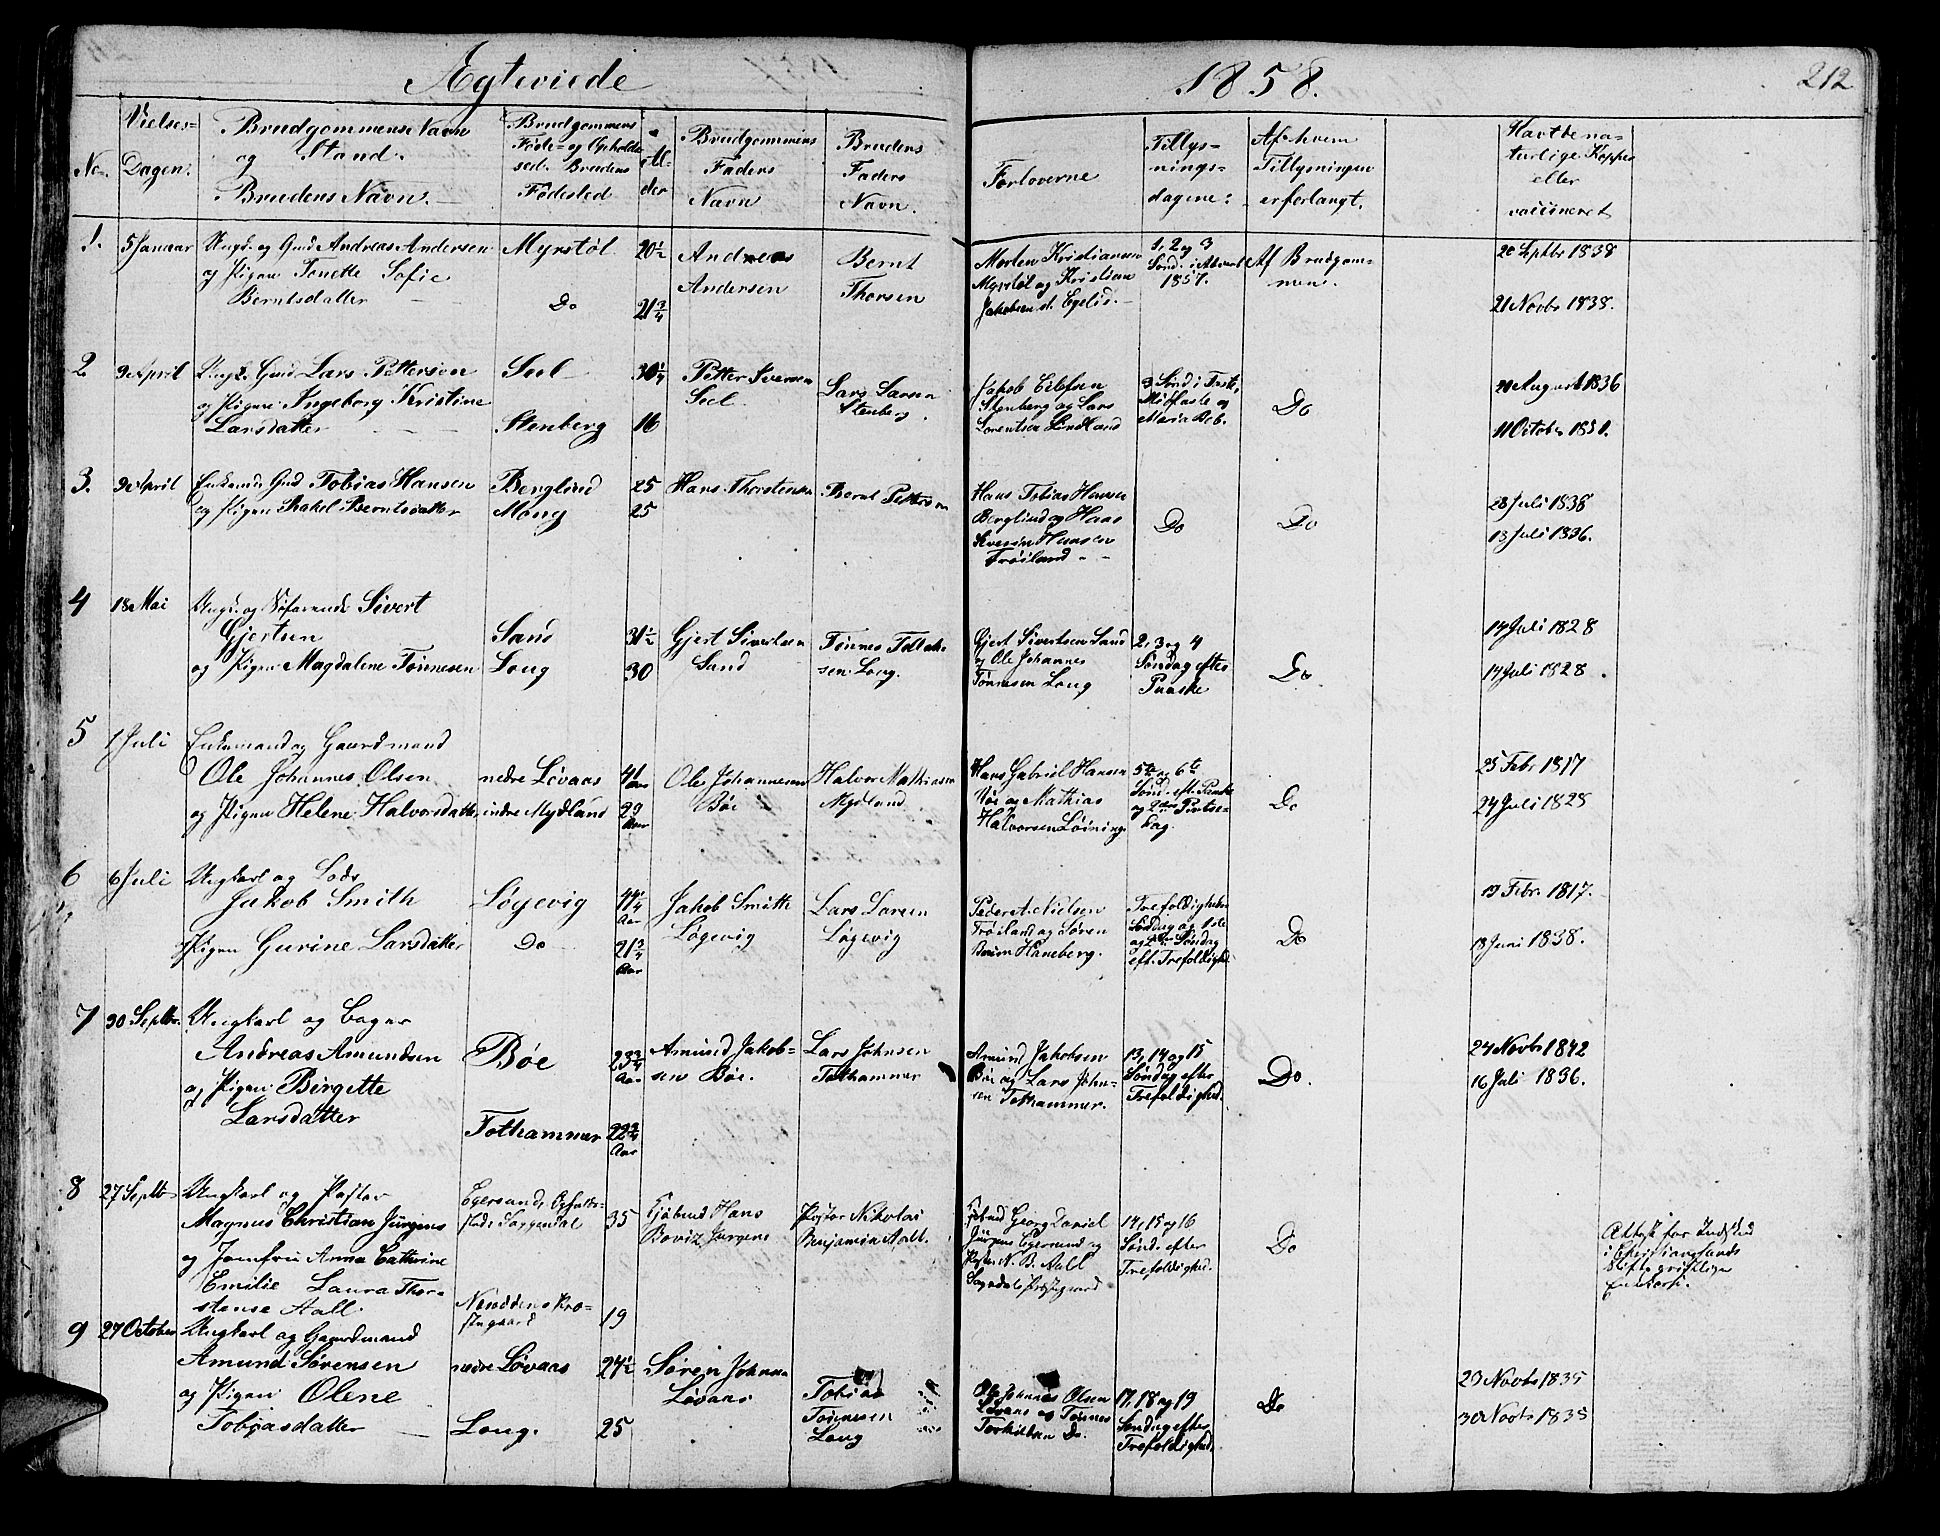 Ægteviede
1858.
212
No.
Vielses-
Dagen.
Brudgommens Navn
og Stand.
Brudens Navn.
Brudgommens
Føde- og Opholds-
sted. Brudens
Fødested
Al-
der
Brudgommens
Faders
Navn
Brudens
Faders
Navn.
Forloverne
Tillys-
nings-
dagene.
Af hvem
Tillysningen
er forlangt.
Havt de na-
turlige Kopper
eller
vaccineret
1.
5 Januar
Ungk. og Gmd Andreas Andersen
og Pigen Tonette Sofie
Berntsdatter
Myrstøl
Do
20½
21¾
Andreas
Andersen
Bernt
Thorsen
Morten Kristiansen
Myrstøl og Kristian
Jakobsen st. Egelid.
1, 2 og 3
Sønd. i Advent
1857.
Af Brudgom-
men.
20 Septbr 1838
21 Novbr 1838.
2
9 April
Ungk. Gmd Lars Pettersen
og Pigen Ingeborg Kristine
Larsdatter
Seel
Stenberg
30¼
16
Petter Iversen
Seel
Lars Larsen
Stenberg
Jakob Eilefsen
Stenberg og Lars
Lorentsen Lindland
3 Sønd i Faste,
Midfaste og
Maria Beb.
Do
August 1836
11 Octobr 1851.
3.
9 April
Enkemd. Gmd Tobias Hansen
og Pigen Rakel Berntsdatter
Berglind
Mong
25
25
Hans Thorstensen
Bernt Pettersen
Hans Tobias Hansen
Berglind og Hans
Severin Hansen
Frøiland
Do
Do
28 Juli 1838
13 Juli 1836.
4
18 Mai
Ungk. og Søfarende Sivert
Gjertsen
og Pigen Magdalene Tønnesen
Sand
Long
31½
30
Gjert Sivertsen
Sand
Tønnes Tollak-
sen Long.
Gjert Sivertsen Sand
og Ole Johannes
Tønnesen Long
2, 3 og 4
Søndag efter
Paaske
Do
14 Juli 1828
14 Juli 1828.
5
1 Juli
Enkemand og Gaardmand
Ole Johannes Olsen
og Pigen Helene Halvorsdatter
nedre Løvaas
indre Mydland
41
Aar
29
Aar
Ole Johannesen
Bøe
Halvor Mathiasen
Mydland
Hans Gabriel Hansen
Bøe og Mathias
Halvorsen Løining
5te og 6te
Sønd. eft. Paaske
og 2den Pintse-
dag.
Do
25 Febr 1817
24 Juli 1828
6
6 Juli
Ungkarl og Lods
Jakob Smith
Pigen Gurine Larsdatter
Løgevig
Do
44¼
Aar
21¾
Aar
Jakob Smith
Løgevig
Lars Larsen
Løgevig
Peder A. Nielsen
Frøiland og Søren
Haneberg.
Trefoldigheds
Søndag og 1ste
og 2den Søndag
eft. Trefoldighed
Do
19 Febr 1817.
18 Juni 1838.
7
30 Septbr.
Ungkarl og Bager
Andreas Amundsen
og Pigen Birgitte
Larsdatter
Bøe
Tothammer
23¾
Aar
22¾
Aar
Amund Jakob-
sen Bøe.
Lars Johnsen
Tothammer
Amund Jakobsen
Bøe og Lars John-
sen Tothammer.
13, 14 og 15
Søndag efter
Trefoldighed.
Do.
24 Novbr 1842
16 Juli 1836.
8
27 Septbr
Ungkarl og Pastor
Magnus Christian Jürgens
og Jomfru Anna Cathrine
Emilie Laura Thor-
stense Aall.
Egersund, Opholds-
sted: Soggendal
Præ-
stegaard
35
19
Hans
Jürgens
Pastor Nikolai
Benjamin Aall.
Georg Daniel
Jürgens Egersund og
Pastor N. B. Aall
Sogndals Præstegaard
14, 15 og 16
Sønd. efter
Trefoldighed.
Do
Attest for Indskud
i Christianssands
Stifts geistlige
Enkek.
9
27 October
Ungkarl og Gaardmand
Amund Sørensen
og Pigen Olene
Tobiasdatter
nedre Løvaas
Long.
24½
25
Søren Johnsen
Løvaas
Tobias
Tønnesen
Long
Ole Johannes Olsen
Løvaas og Tønnes
Torkildsen Do.
17, 18 og 19
Søndag efter
Trefoldighed.
Do
23 Novbr 1835
30 Novbr 1835